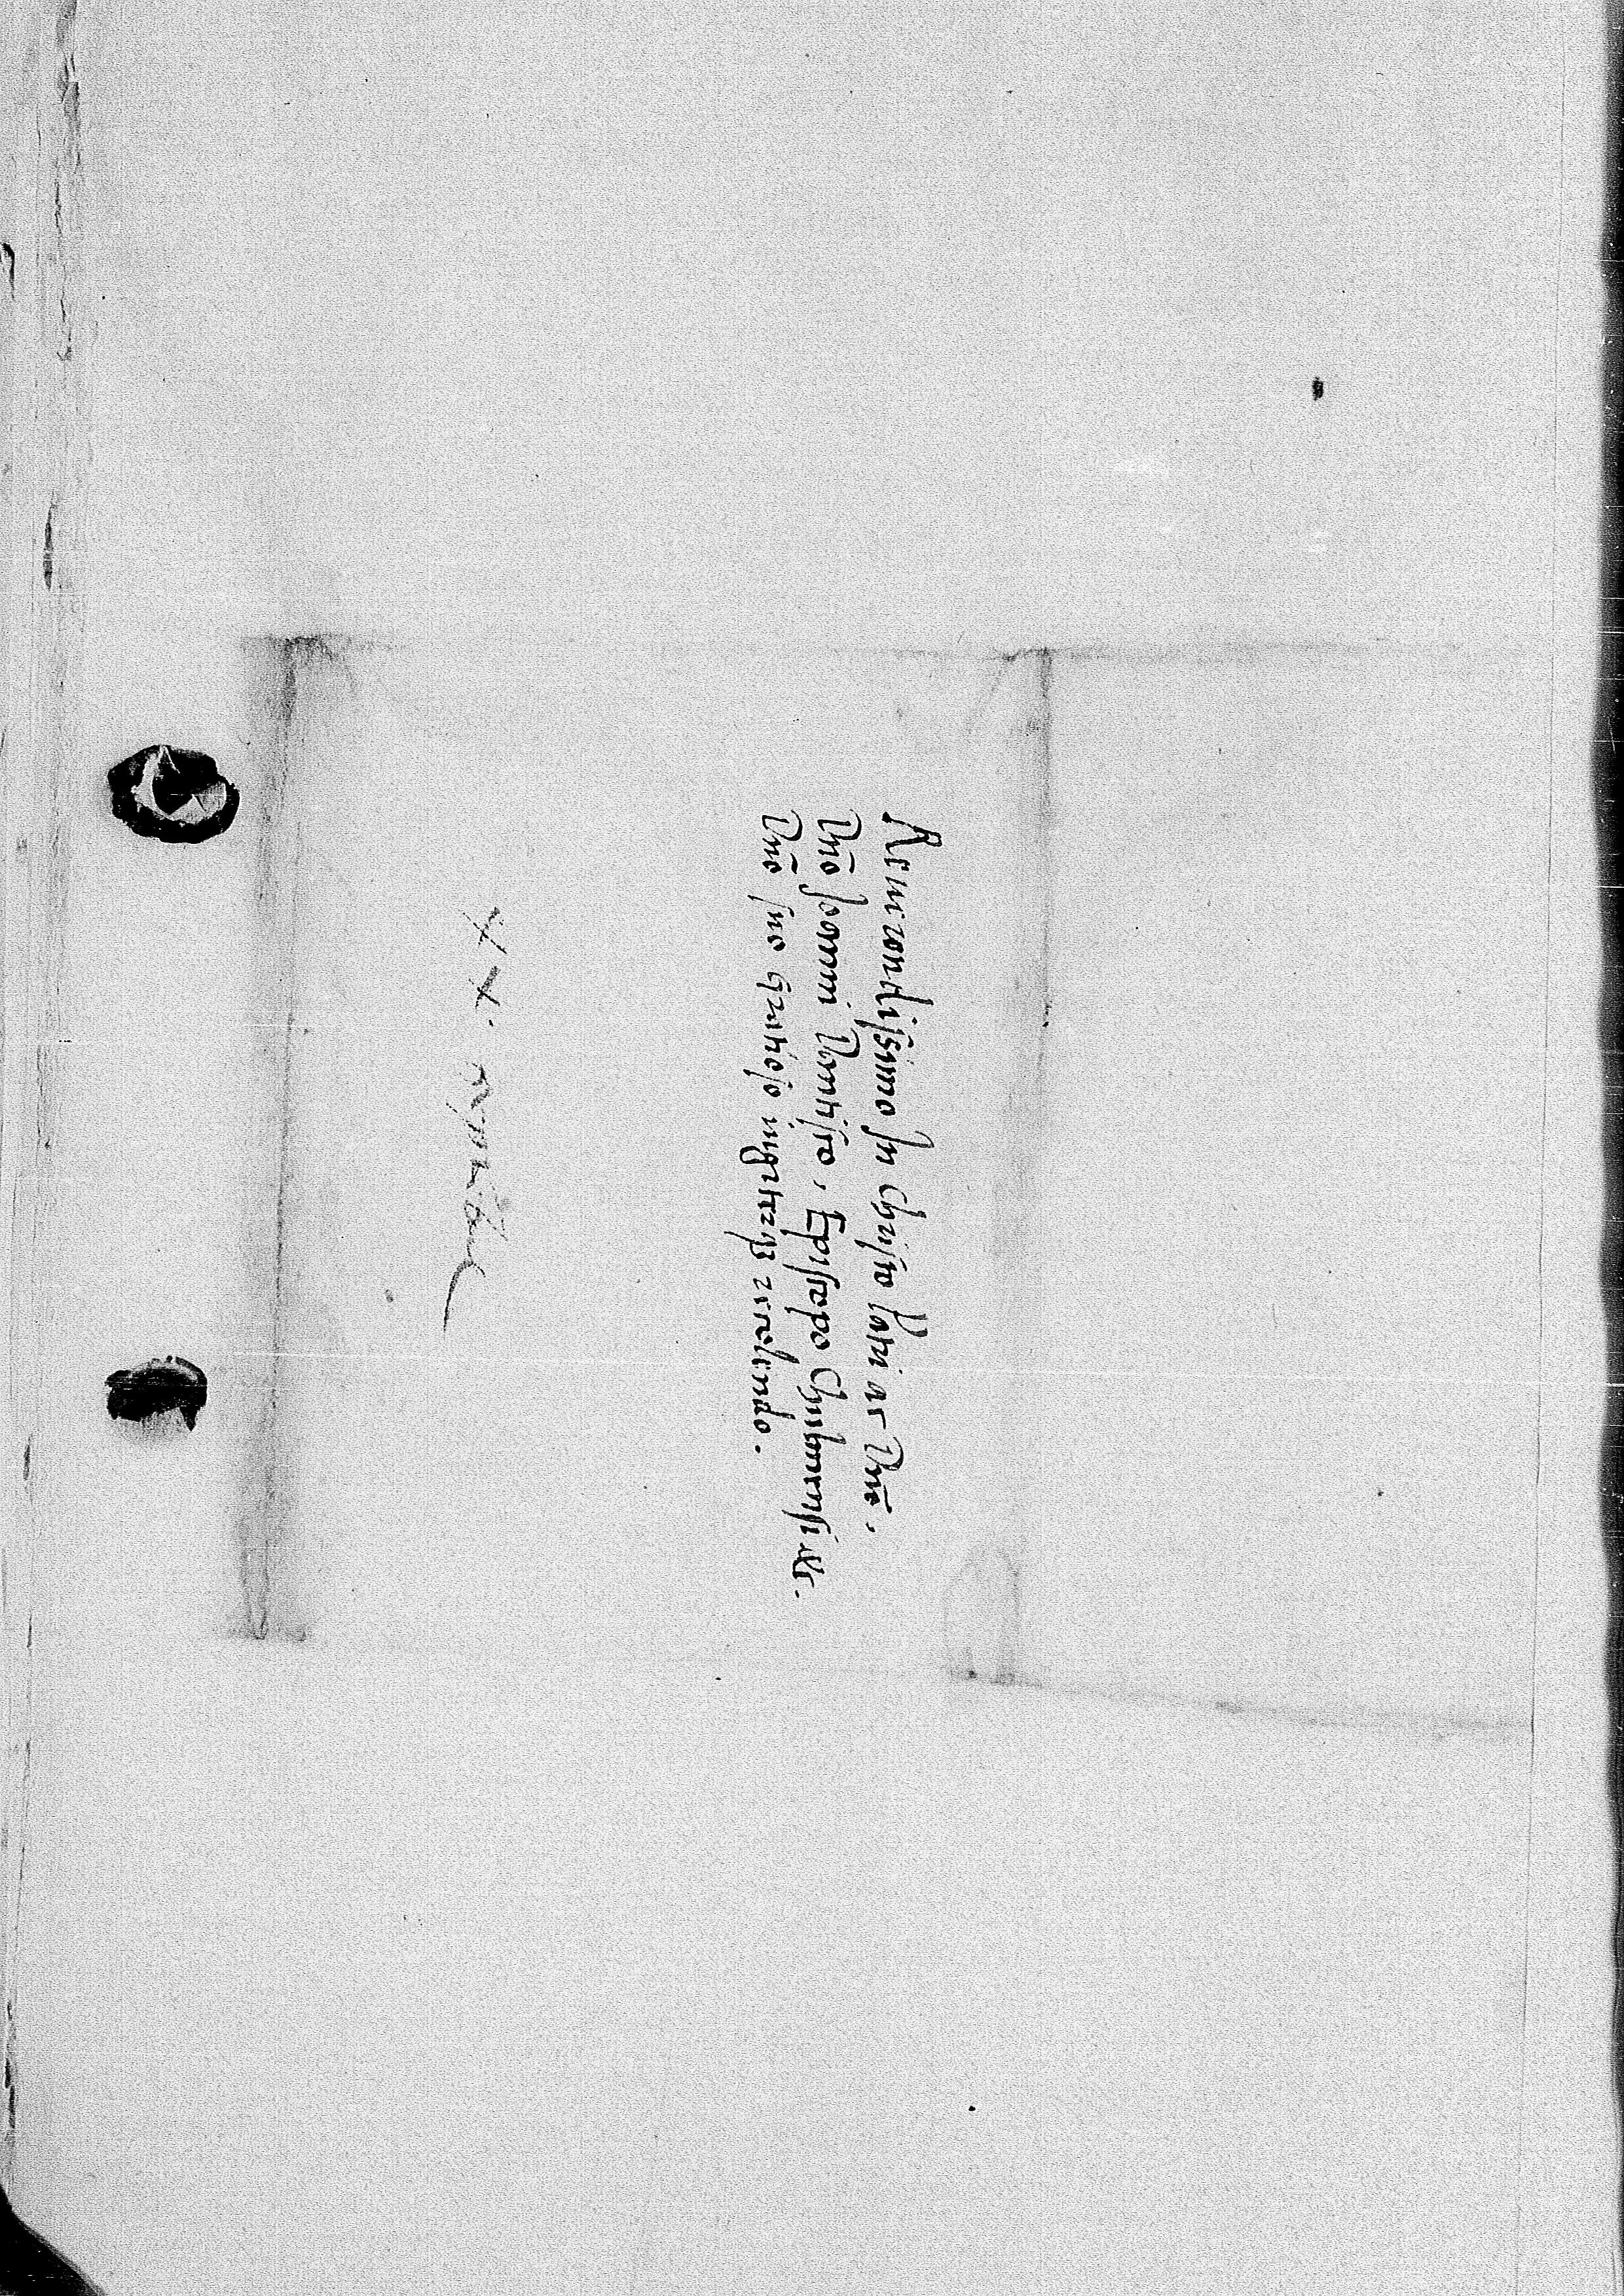 Reuerendissimo In christo patri ac Dno͂,
Dno͂ Joanni Dantisco, Episcopo Chulmensi etc.
Dno͂ suo gratioso semper colendo.
XX.